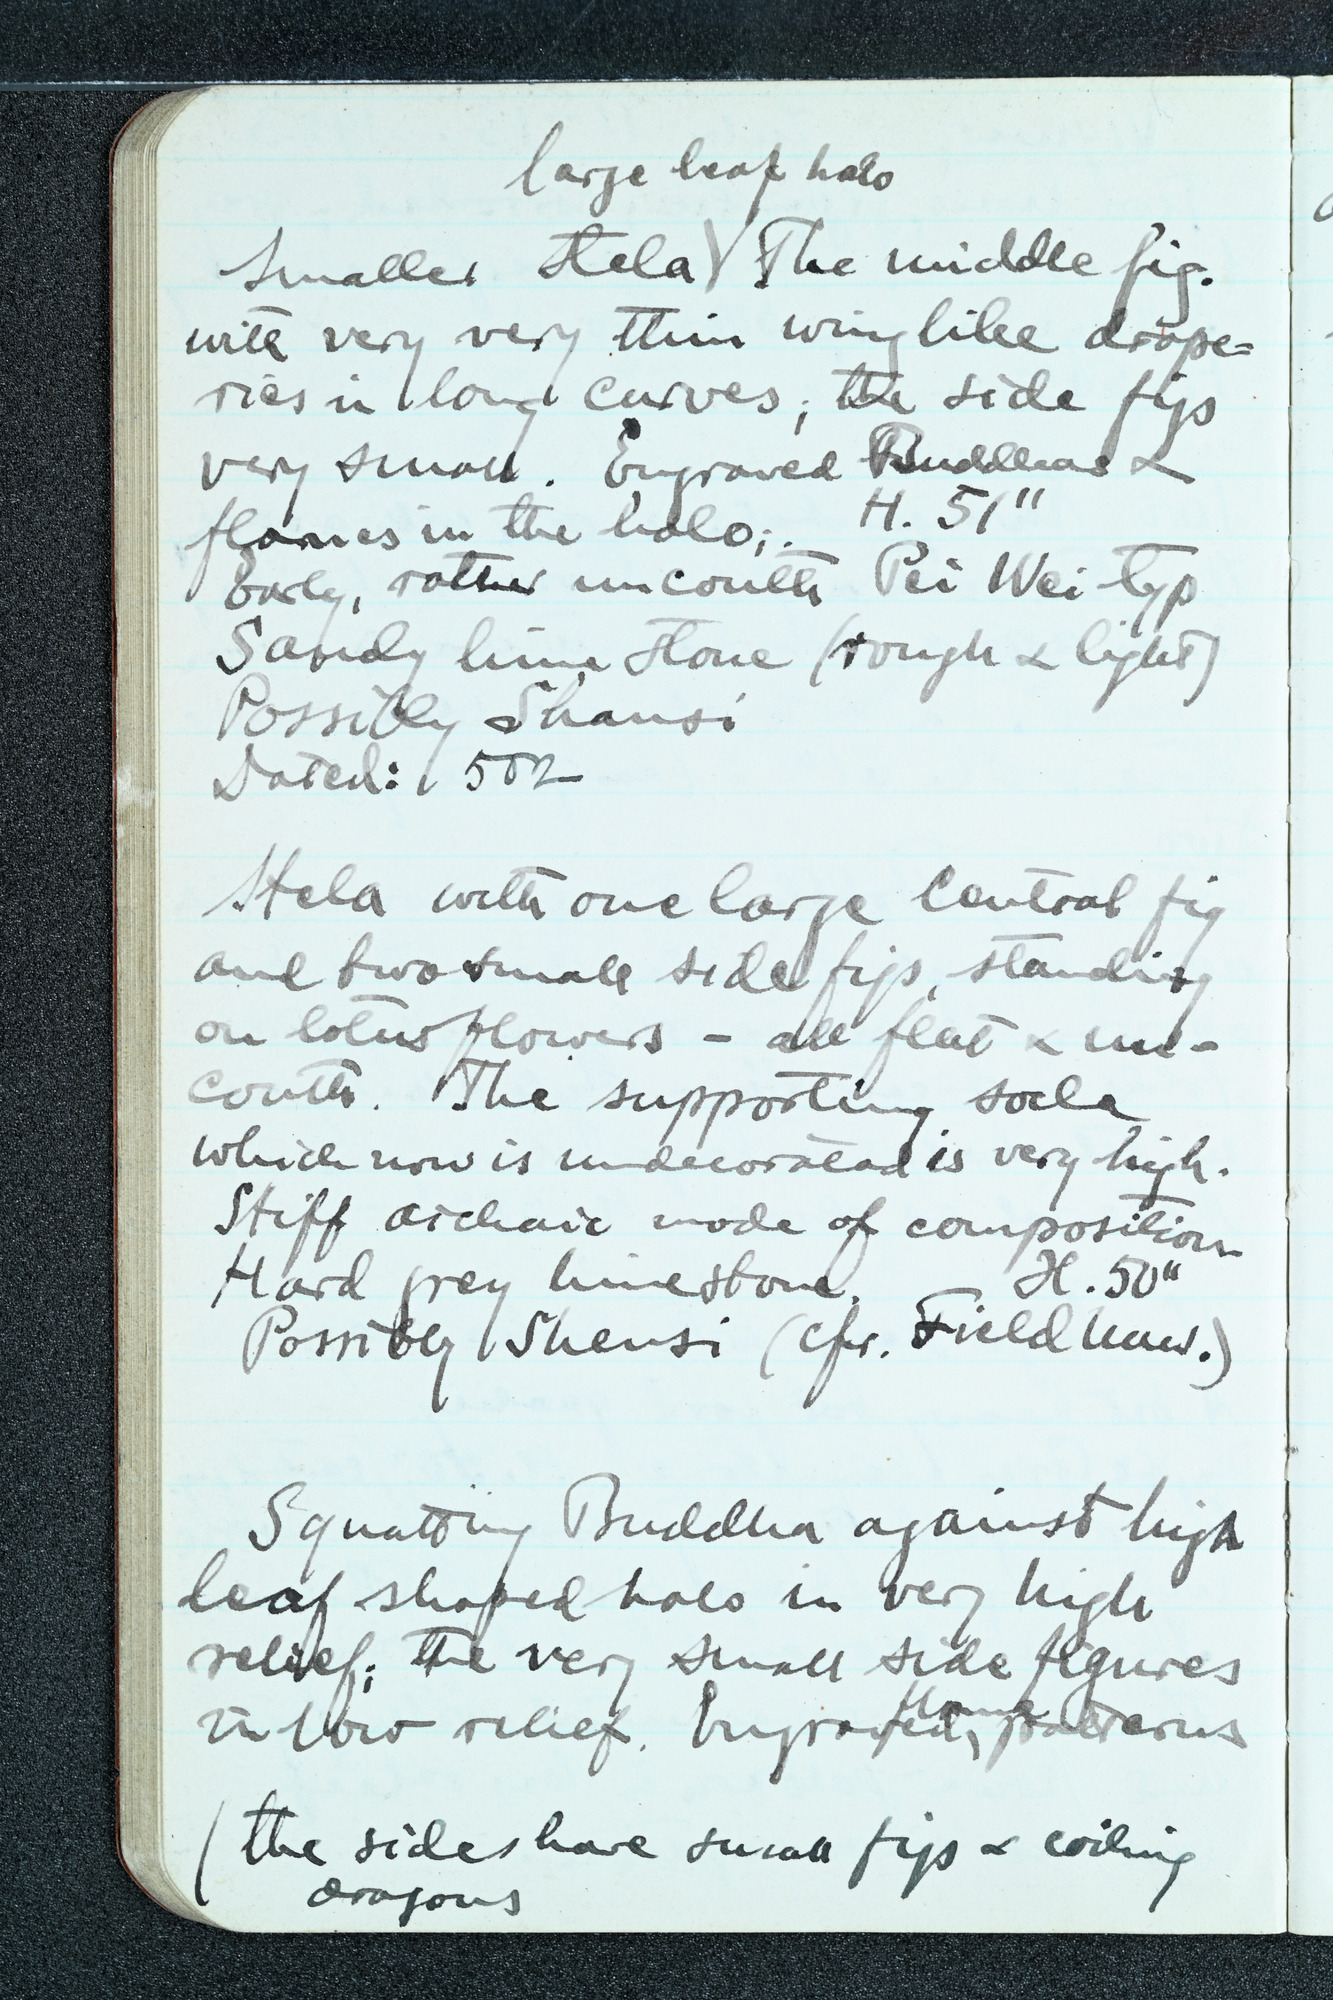 large leaf halo
Smaller Stela The middle fig.
with very very thin winglike drape=
ries in long curves; the side figs
very small. Engraved Buddhas &
flames in the halo;. H. 51"
Early, rather uncouth Pei Wei typ
Sandy lime stone (rough & light)
Possibly Shansi
Dated: 502
Stela with one large central fig
and two small side figs, standing
on lotus flowers - all flat & un-
couth. The supporting socle
which now is undecorated is very high.
Stiff archaic mode of composition
Hard grey limestone. H. 50"
Possibly Shensi (cfr. Field Mus.)
Squatting Buddha against high
leaf shaped halo in very high
relief; the very small side figures
flame
in low relief. Engraved, patterns
(the sides have small figs & coiling
dragons